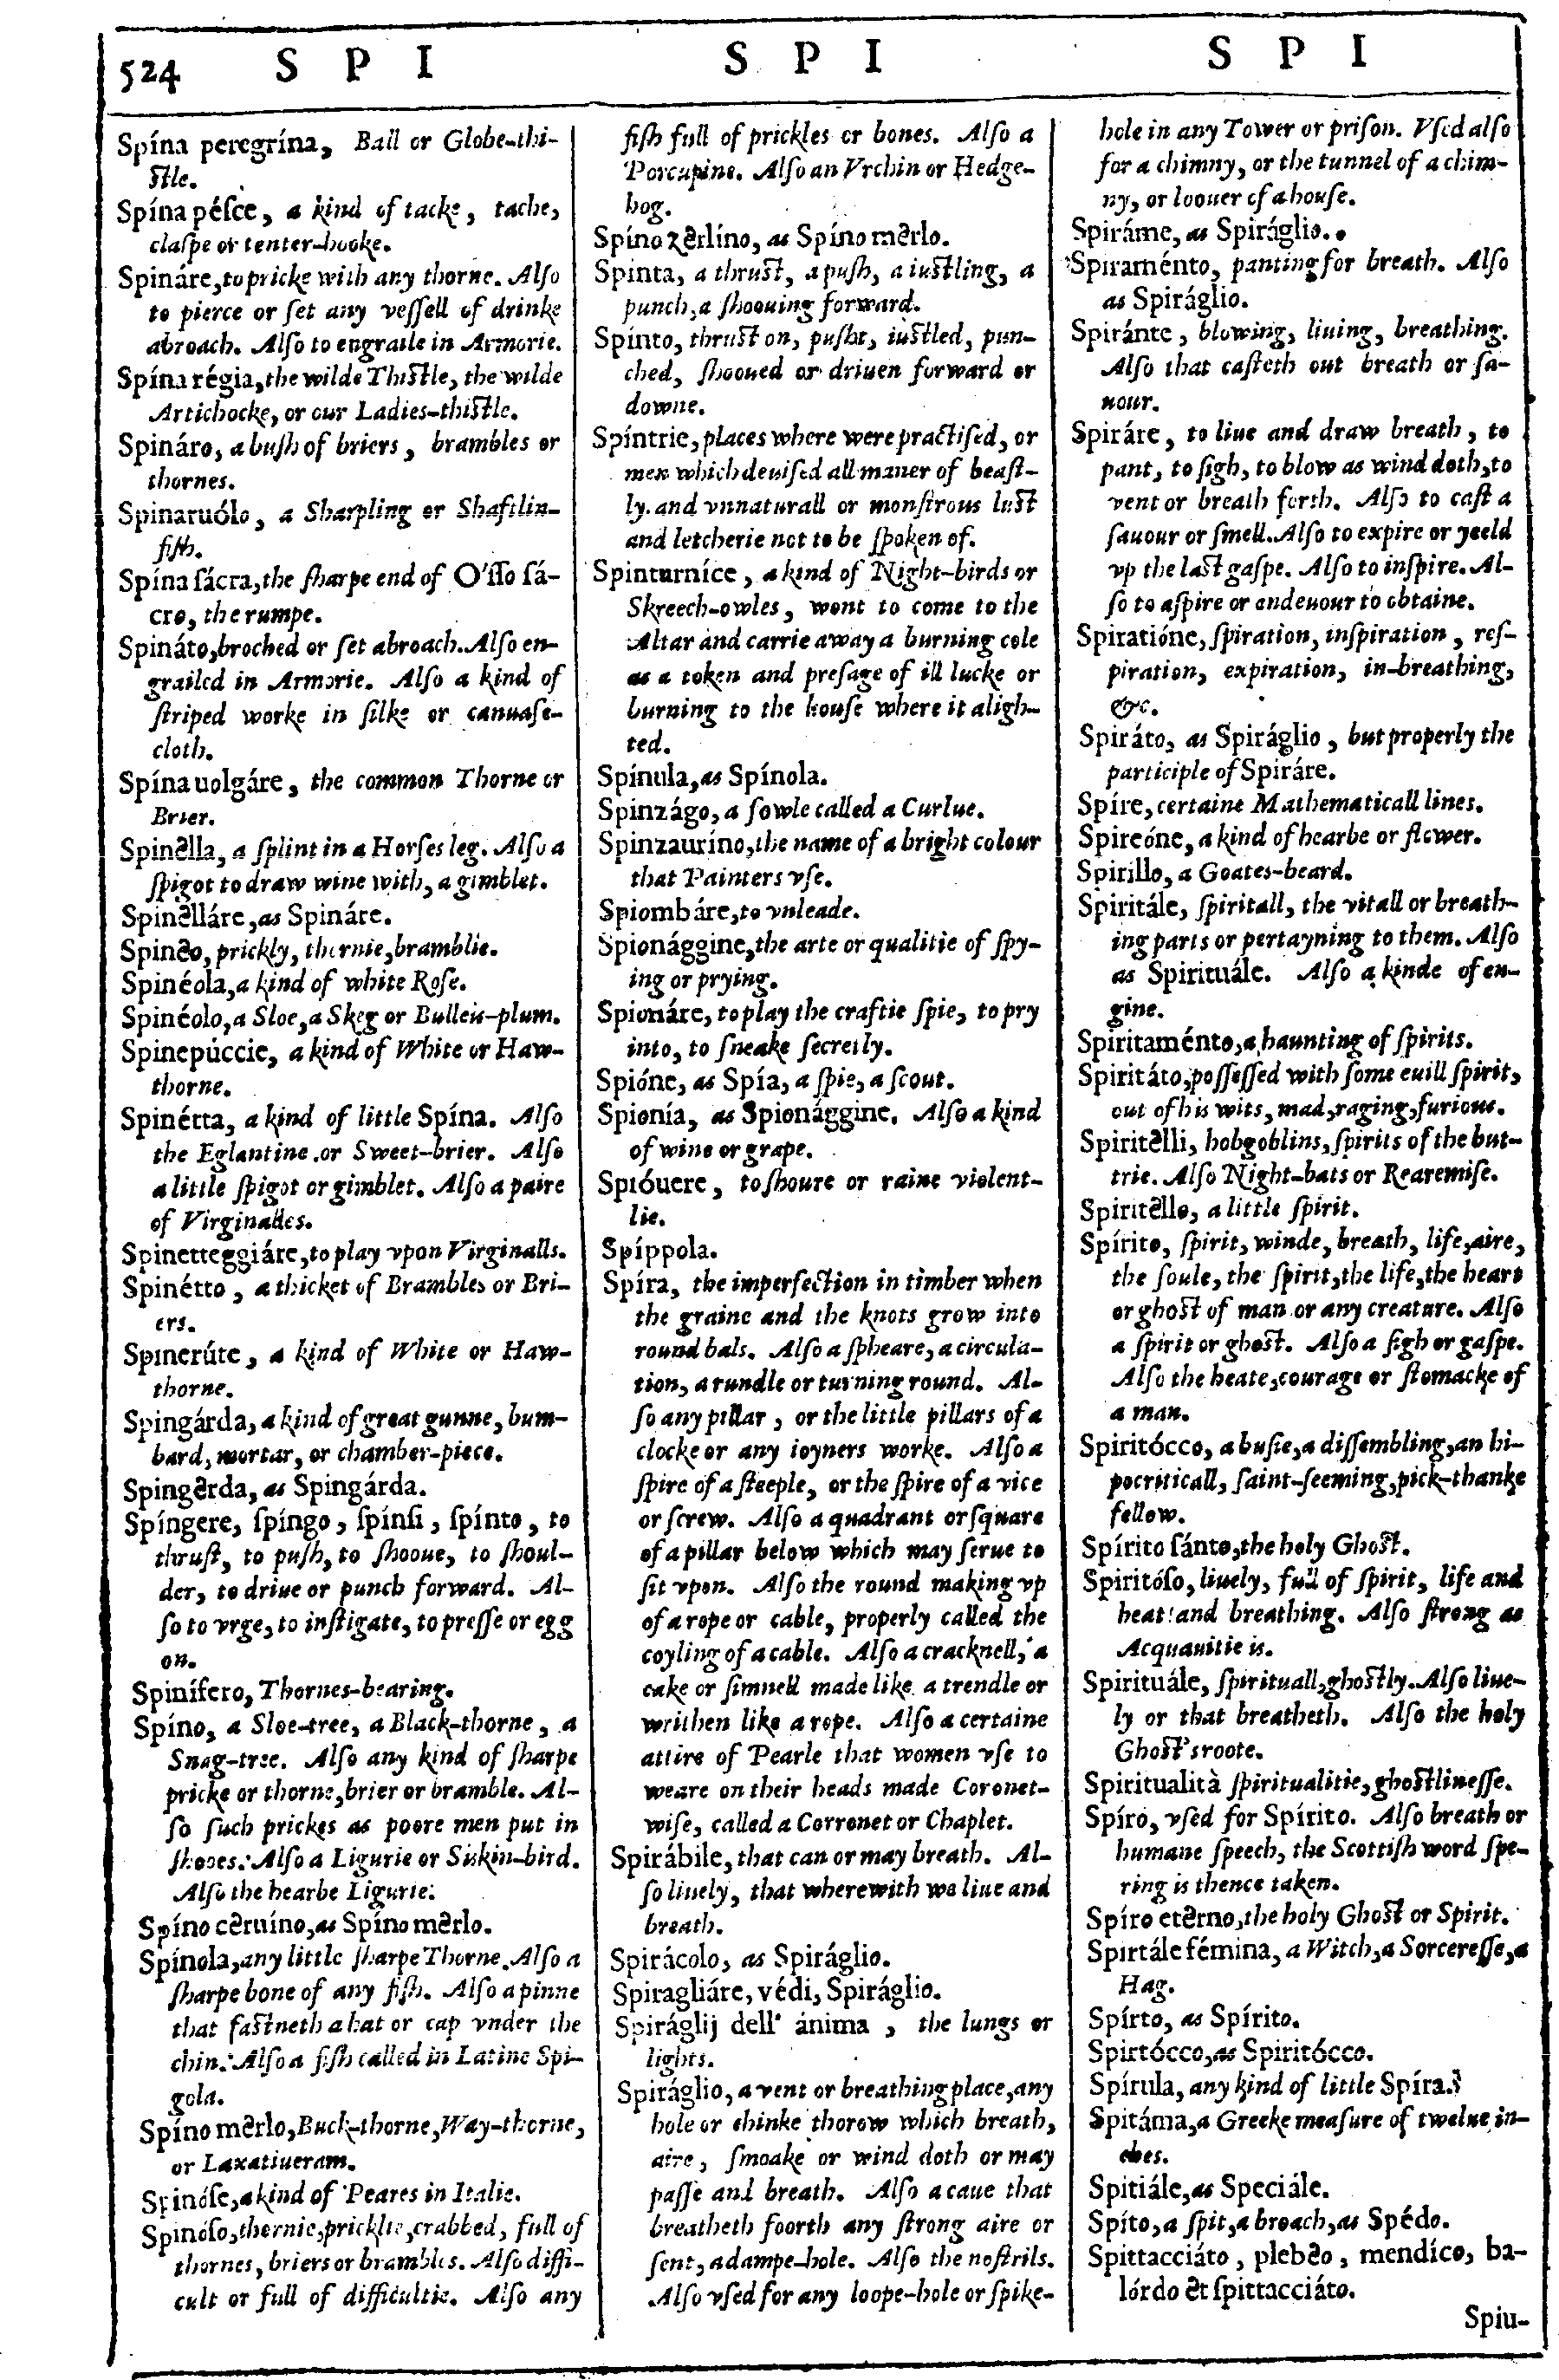 524 S P I S P I S P I
Spína peregrína, Ball or Globe-thi-
stle.
Spína pésce, a kind of tacke, tache,
claspe or tenter-hooke.
Spináre, to pricke with any thorne. Also
to pierce or set any vessell of drinke
abroach. Also to engraile in Armorie.
Spína régia, the wilde Thistle, the wilde
Artichocke, or our Ladies-thistle.
Spináro, a bush of briers, brambles or
thornes.
Spinaruólo, a Sharpling or Shaftlin-
fish.
Spína sácra, the sharpe end of O'sso sá-
cro, the rumpe.
Spináto, broched or set abroach. Also en-
grailed in Armorie. Also a kind of
striped worke in silke or canuase-
cloth.
Spína uolgáre, the common Thorne or
Brier.
Spinella, a splint in a Horses leg. Also a
spigot to draw wine with, a gimblet.
Spinelláre, as Spináre.
Spineo, prickly, thornie, bramblie.
Spinéola, a kind of white Rose.
Spinéolo, a Sloe, a Skeg or Bulleis-plum.
Spinepúccie, a kind of White or Haw-
thorne.
Spinétta, a kind of little Spína. Also
the Eglantine or Sweet-brier. Also
a little spigot or gimblet. Also a paire
of Virginalles.
Spinetteggiáre, to play vpon Virginalls.
Spinétto, a thicket of Brambles or Bri-
ers.
Spinerúte, a kind of White or Haw-
thorne.
Spingárda, a kind of great gunne, bum-
bard, mortar, or chamber-piece.
Spingerda, as Spingárda.
Spíngere, spíngo, spínsi, spínto, to
thrust, to push, to shooue, to shoul-
der, to driue or punch forward. Al-
so to vrge, to instigate, to presse or egg
on.
Spinífero, Thornes-bearing.
Spíno, a Sloe-tree, a Black-thorne, a
Snag-tree. Also any kind of sharpe
pricke or thorne, brier or bramble. Al-
so such prickes as poore men put in
shooes. Also a Ligurie or Siskin-bird.
Also the hearbe Ligurie.
Spíno ceruíno, as Spíno merlo.
Spínola, any little sharpe Thorne. Also a
sharpe bone of any fish. Also a pinne
that fastneth a hat or cap vnder the
chin. Also a fish called in Latine Spi-
gola.
Spíno merlo, Buck-thorne, Way-thorne,
or Laxatiueram.
Spinóse, a kind of Peares in Italie.
Spinóso, thornie, pricklie, crabbed, full of
thornes, briers or brambles. Also diffi-
cult or full of difficultie. Also any
fish full of prickles or bones. Also a
Porcupine. Also an Vrchin or Hedge-
hog.
Spíno zerlíno, as Spíno merlo.
Spinta, a thrust, a push, a iustling, a
punch, a shoouing forward.
Spínto, thrust on, pusht, iustled, pun-
ched, shooued or driuen forward or
downe.
Spíntrie, places where were practised, or
men which deuised all maner of beast-
ly and vnnaturall or monstrous lust
and letcherie not to be spoken of.
Spinturníce, a kind of Night-birds or
Skreech-owles, wont to come to the
Altar and carrie away a burning cole
as a token and presage of ill lucke or
burning to the house where it aligh-
ted.
Spínula, as Spínola.
Spinzágo, a fowle called a Curlue.
Spinzauríno, the name of a bright colour
that Painters vse.
Spiombáre, to vnleade.
Spionággine, the arte or qualitie of spy-
ing or prying.
Spionáre, to play the craftie spie, to pry
into, to sneake secretly.
Spióne, as Spía, a spie, a scout.
Spionía, as Spionággine. Also a kind
of wine or grape.
Spióuere, to shoure or raine violent-
lie.
Spíppola.
Spíra, the imperfection in timber when
the graine and the knots grow into
round bals. Also a spheare, a circula-
tion, a rundle or turning round. Al-
so any pillar, or the little pillars of a
clocke or any ioyners worke. Also a
spire of a steeple, or the spire of a vice
or screw. Also a quadrant or square
of a pillar below which may serue to
sit vpon. Also the round making vp
of a rope or cable, properly called the
coyling of a cable. Also a cracknell, a
cake or simnell made like a trendle or
writhen like a rope. Also a certaine
attire of Pearle that women vse to
weare on their heads made Coronet-
wise, called a Corronet or Chaplet.
Spirábile, that can or may breath. Al-
so liuely, that wherewith we liue and
breath.
Spirácolo, as Spiráglio.
Spiragliáre, védi, Spiráglio.
Spiráglij dell' ánima, the lungs or
lights.
Spiráglio, a vent or breathing place, any
hole or chinke thorow which breath,
aire, smoake or wind doth or may
passe and breath. Also a caue that
breatheth foorth any strong aire or
sent, a dampe-hole. Also the nostrils.
Also vsed for any loope-hole or spike-
hole in any Tower or prison. Vsed also
for a chimny, or the tunnel of a chim-
ny, or loouer of a house.
Spiráme, as Spiráglio.
Spiraménto, panting for breath. Also
as Spiráglio.
Spiránte, blowing, liuing, breathing.
Also that casteth out breath or sa-
uour.
Spiráre, to liue and draw breath, to
pant, to sigh, to blow as wind doth, to
vent or breath forth. Also to cast a
sauour or smell. Also to expire or yeeld
vp the last gaspe. Also to inspire. Al-
so to aspire or endeuour to obtaine.
Spiratióne, spiration, inspiration, res-
piration, expiration, in-breathing,
&c.
Spiráto, as Spiráglio, but properly the
participle of Spiráre.
Spíre, certaine Mathematicall lines.
Spireóne, a kind of hearbe or flower.
Spirillo, a Goates-beard.
Spiritále, spiritall, the vitall or breath-
ing parts or pertayning to them. Also
as Spirituále. Also a kinde of en-
gine.
Spiritaménto, a haunting of spirits.
Spiritáto, possessed with some euill spirit,
out of his wits, mad, raging, furious.
Spiritelli, hobgoblins, spirits of the but-
trie. Also Night-bats or Rearemise.
Spiritello, a little spirit.
Spírito, spirit, winde, breath, life, aire,
the soule, the spirit, the life, the heart
or ghost of man or any creature. Also
a spirit or ghost. Also a sigh or gaspe.
Also the heate, courage or stomacke of
a man.
Spiritócco, a busie, a dissembling, an hi-
pocriticall, saint-seeming, pick-thanke
fellow.
Spírito sánto, the holy Ghost.
Spiritóso, liuely, full of spirit, life and
heat and breathing. Also strong as
Acquauitie is.
Spirituále, spirituall, ghostly. Also liue-
ly or that breatheth. Also the holy
Ghost's roote.
Spiritualità spiritualitie, ghostlinesse.
Spíro, vsed for Spírito. Also breath or
humane speech, the Scottish word spe-
ring is thence taken.
Spíro eterno, the holy Ghost or Spirit.
Spirtále fémina, a Witch, a Sorceresse, a
Hag.
Spírto, as Spírito.
Spirtócco, as Spiritócco.
Spírula, any kind of little Spíra.
Spitáma, a Greeke measure of twelue in-
ches.
Spitiále, as Speciále.
Spíto, a spit, a broach, as Spédo.
Spittacciáto, plebeo, mendíco, ba-
lórdo et spittacciáto.
Spiu-